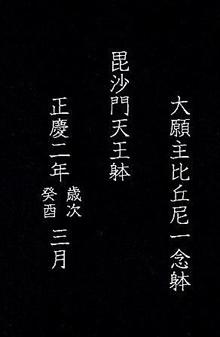 大願主比丘尼一念躰
毘沙門天王躰
正慶二年歳次癸酉三月